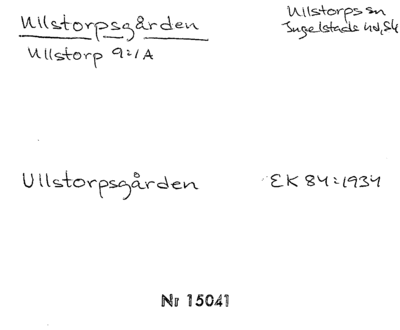 Ullstorpsgården
Ullstorps sn
Ingelstads hd, Sk
Ullstorp 9:1A
Ullstorpsgården EK 84:1934
Nr 15041